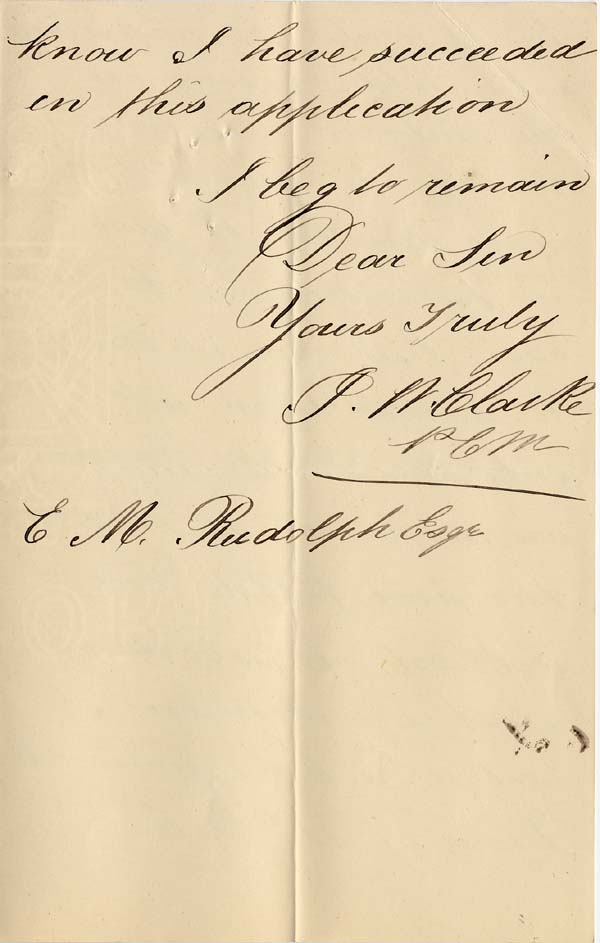 know I have succeeded
in this application
I beg to remain
Dear Sir
Yours Truly
J. W. Clarke
P C M
E M. Rudolph Esqr